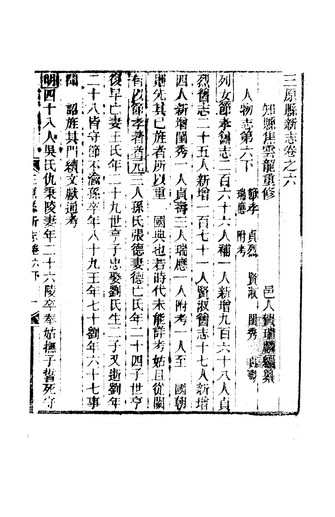 三原縣新志卷之六
知縣焦雲龍重修　邑人賀瑞麟編纂
人物志第六下　節孝　貞烈　賢淑　閨秀　貞壽　瑞應　附考
列女節孝舊志二百六十六人補　人新增九百六十八人貞
烈舊志二十五人新增一百七十一人賢淑舊志十七人新增
四人新增閨秀　人貞壽三人瑞應　人附考　人至　國朝
節先其已旌者所以重　國典也若時代未能詳考姑且從闕
有以節孝著者元　人孫氏張德妻德亡氏年二十四子世亨
後早亡妻王氏年二十九世亨子忠娶劉氏生二子又逝劉年
二十八皆守節不渝孫卒年八十九王年七十劉年六十七事
聞　詔旌其門續文獻通考
明四十八人吳氏仇栗陵妻年二十六陵卒奉姑撫子誓死守
三原縣新志卷六下　一